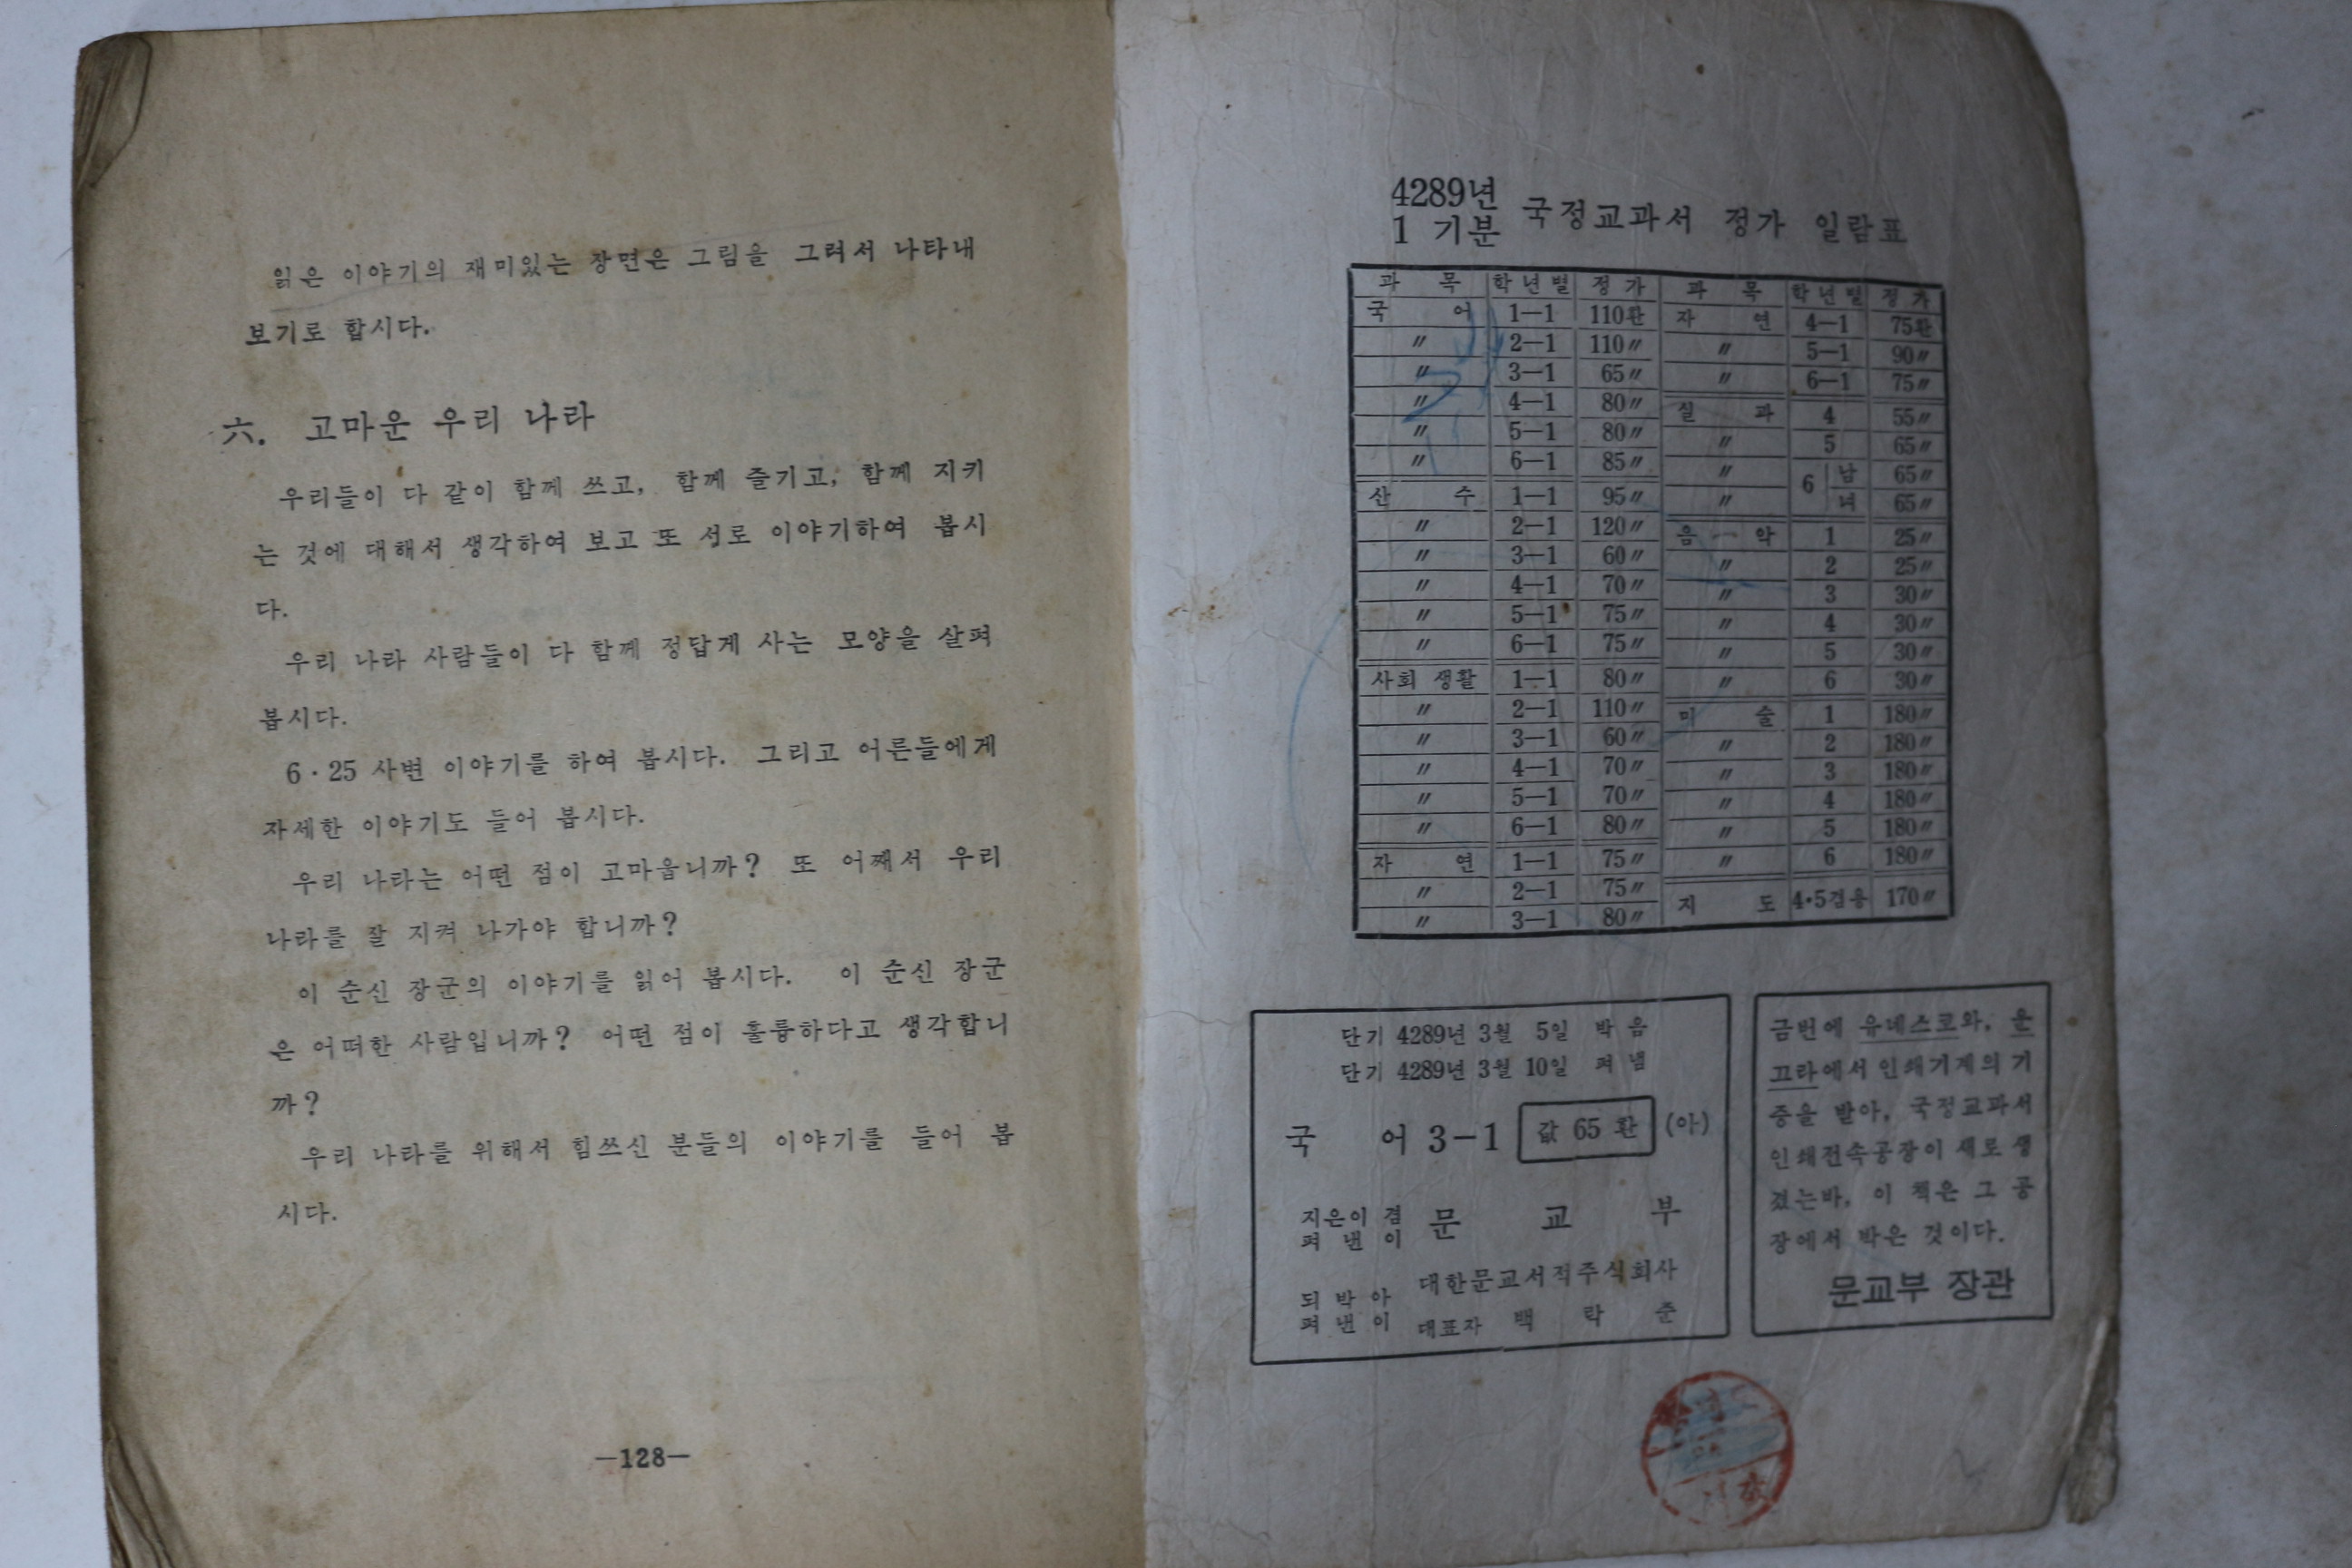 읽은 이야기의 재미있는 장면은 그림을 그려서 나타내
보기로 합시다.
六. 고마운 우리 나라
우리들이 다 같이 함께 쓰고, 함께 즐기고, 함께 지키
는 것에 대해서 생각하여 보고 또 서로 이야기하여 봅시
다.
우리 나라 사람들이 다 함께 정답게 사는 모양을 살펴
봅시다.
6·25 사변 이야기를 하여 봅시다. 그리고 어른들에게
자세한 이야기도 들어 봅시다.
우리 나라는 어떤 점이 고마웁니까? 또 어째서 우리
나라를 잘 지켜 나가야 합니까?
이 순신 장군의 이야기를 읽어 봅시다. 이 순신 장군
은 어떠한 사람입니까? 어떤 점이 훌륭하다고 생각합니
까?
우리 나라를 위해서 힘쓰신 분들의 이야기를 들어 봅
시다.
—128—
4289년
1 기분 국정교과서 정가 일람표
과 목 학년별 정가 과 목 학년별 정가
국 어 1—1 110환 자 연 4—1 75환
〃 2—1 110〃 〃 5—1 90〃
〃 3—1 65〃 〃 6—1 75〃
〃 4—1 80〃 실 과 4 55〃
〃 5—1 80〃 〃 5 65〃
〃 6—1 85〃 〃 6 남 65〃
산 수 1—1 95〃 〃 녀 65〃
〃 2—1 120〃 음 악 1 25〃
〃 3—1 60〃 〃 2 25〃
〃 4—1 70〃 〃 3 30〃
〃 5—1 75〃 〃 4 30〃
〃 6—1 75〃 〃 5 30〃
사회 생활 1—1 80〃 〃 6 30〃
〃 2—1 110〃 미 술 1 180〃
〃 3—1 60〃 〃 2 180〃
〃 4—1 70〃 〃 3 180〃
〃 5—1 70〃 〃 4 180〃
〃 6—1 80〃 〃 5 180〃
자 연 1—1 75〃 〃 6 180〃
〃 2—1 75〃 지 도 4·5겸용 170〃
〃 3—1 80〃
단기 4289년 3월 5일 박음
단기 4289년 3월 10일 펴냄
국 어 3—1 값 65 환 (아)
지은이 겸
펴 낸 이 문 교 부
되 박 아
펴 낸 이
대한문교서적주식회사
대표자 백 락 준
금번에 유네스코와, 운
끄라에서 인쇄기계의 기
증을 받아, 국정교과서
인쇄전속공장이 새로 생
겼는바, 이 책은 그 공
장에서 박은 것이다.
문교부 장관